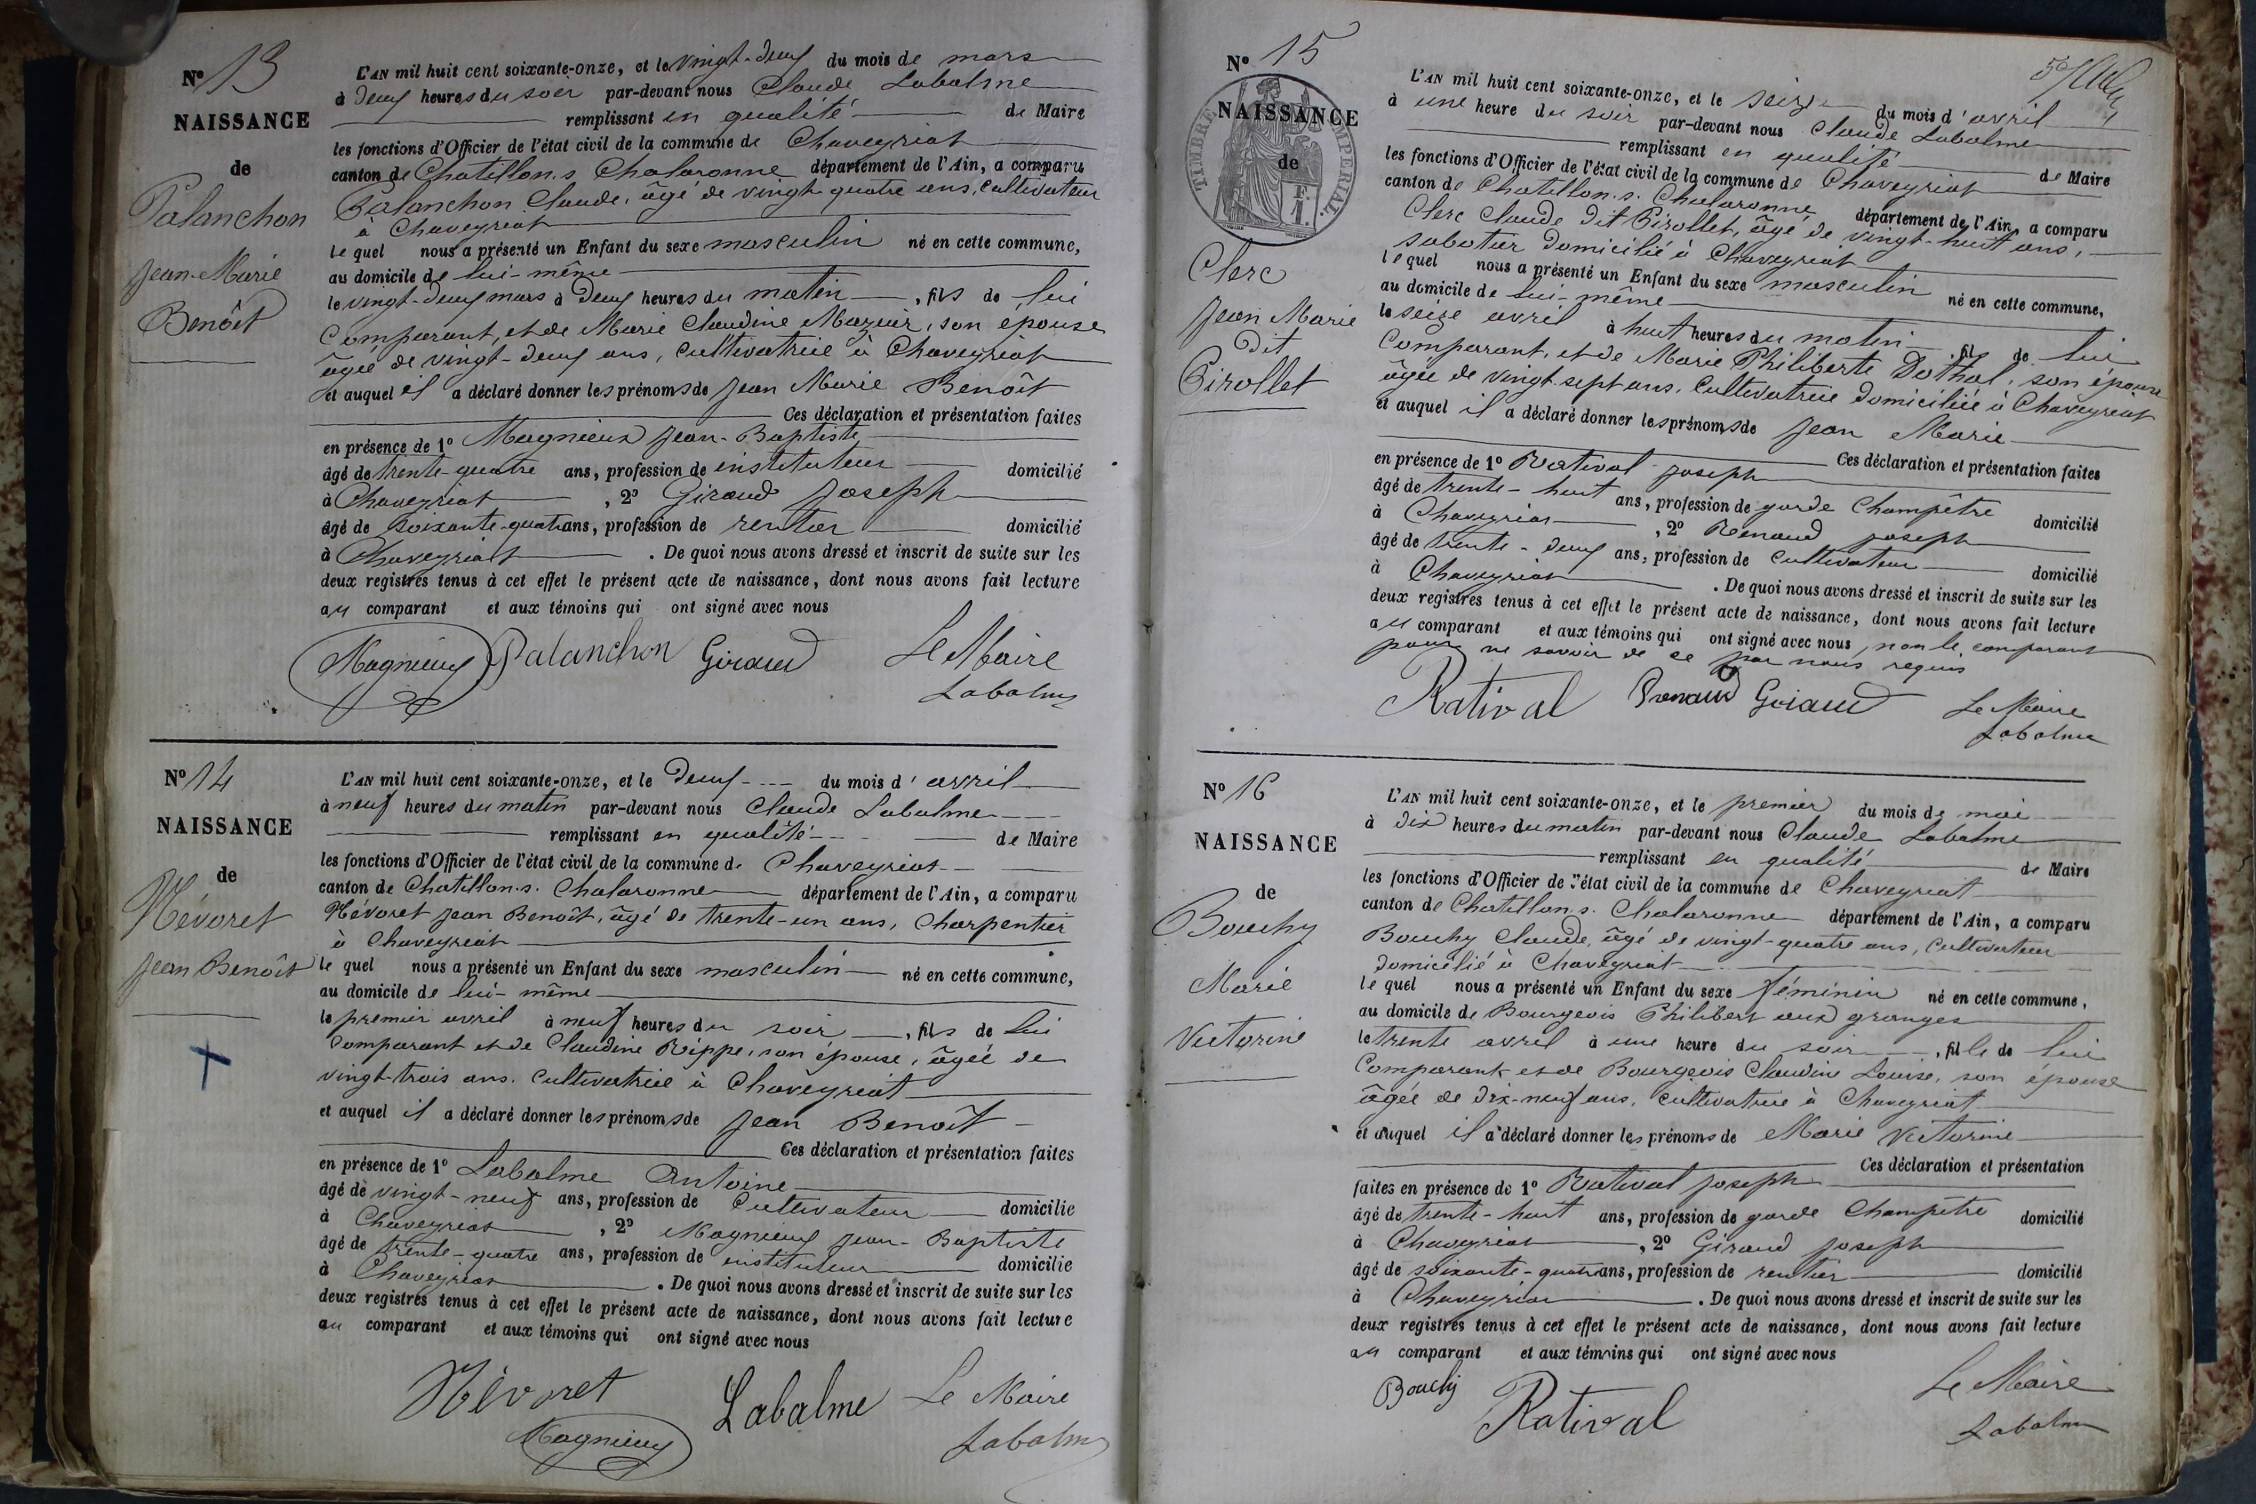 N° 13
NAISSANCE
de
Palanchon
Jean-Marie
Benoît
L'AN mil huit cent soixante-onze, et le vingt-deux du mois de mars
à deux heures du soir par-devant nous Claude Labalme
remplissant en qualité de Maire
les fonctions d'Officier de l'état civil de la commune de Chaveyriat
canton de Chatillon s. Chalaronne département de l'Ain, a comparu
Palanchon Claude, âgé de vingt-quatre ans, cultivateur
à Chaveyriat
le quel nous a présenté un Enfant du sexe masculin né en cette commune,
au domicile de lui-même
le vingt-deux mars à deux heures du matin, fils de lui
comparant, et de Marie Claudine Mazuir, son épouse
âgée de vingt-deux ans, cultivatrice à Chaveyriat
et auquel il a déclaré donner les prénoms de Jean Marie Benoît
Ces déclaration et présentation faites
en présence de 1° Magnieux Jean-Baptiste
âgé de trente-quatre ans, profession de instituteur domicilié
à Chaveyriat, 2° Giraud Joseph
âgé de soixante-quatre ans, profession de rentier domicilié
à Chaveyriat. De quoi nous avons dressé et inscrit de suite sur les
deux registres tenus à cet effet le présent acte de naissance, dont nous avons fait lecture
au comparant et aux témoins qui ont signé avec nous
Magnieux Palanchon Giraud Le Maire
Labalme
N° 14
NAISSANCE
de
Névoret
Jean Benoît
L'AN mil huit cent soixante-onze, et le deux du mois d'avril
à neuf heures du matin par-devant nous Claude Labalme
remplissant en qualité de Maire
les fonctions d'Officier de l'état civil de la commune de Chaveyriat
canton de Chatillon s. Chalaronne département de l'Ain, a comparu
Névoret Jean Benoît, âgé de trente-un ans, Charpentier
à Chaveyriat
le quel nous a présenté un Enfant du sexe masculin né en cette commune,
au domicile de lui-même
le premier avril à neuf heures du soir, fils de lui
comparant et de Claudine Rippe, son épouse, âgée de
vingt-trois ans, cultivatrice à Chaveyriat
et auquel il a déclaré donner les prénoms de Jean Benoît
Ces déclaration et présentation faites
en présence de 1° Labalme Antoine
âgé de vingt-neuf ans, profession de Cultivateur domicilié
à Chaveyriat, 2° Magnieux Jean-Baptiste
âgé de trente-quatre ans, profession de instituteur domicilié
à Chaveyriat. De quoi nous avons dressé et inscrit de suite sur les
deux registres tenus à cet effet le présent acte de naissance, dont nous avons fait lecture
au comparant et aux témoins qui ont signé avec nous
Névoret Labalme Le Maire
Magnieux Labalme
N° 15
TIMBRE IMPERIAL
NAISSANCE
de
Clerc
Jean Marie
dit
Pirollet
L'AN mil huit cent soixante-onze, et le seize du mois d'avril
à une heure du soir par-devant nous Claude Labalme
remplissant en qualité de Maire
les fonctions d'Officier de l'état civil de la commune de Chaveyriat
canton de Chatillon. s. Chalaronne département de l'Ain, a comparu
Clerc Claude dit Pirollet, âgé de vingt-huit ans,
sabotier domicilié à Chaveyriat
le quel nous a présenté un Enfant du sexe masculin né en cette commune,
au domicile de lui-même
le seize avril à huit heures du matin fil de lui
comparant, et de Marie Philiberte Dothal, son épouse
âgée de vingt-sept ans, Cultivatrice domiciliée à Chaveyriat
et auquel il a déclaré donner les prénoms de Jean Marie
Ces déclaration et présentation faites
en présence de 1° Ratival Joseph
âgé de trente-huit ans, profession de garde Champêtre domicilié
à Chaveyriat, 2° Renaud Joseph
âgé de trente-deux ans, profession de cultivateur domicilié
à Chaveyriat. De quoi nous avons dressé et inscrit de suite sur les
deux registres tenus à cet effet le présent acte de naissance, dont nous avons fait lecture
au comparant et aux témoins qui ont signé avec nous, non le comparant
pour ne savoir de ce par nous requis
Ratival Renaud Giraud Le Maire
Labalme
N° 16
NAISSANCE
de
Bouchy
Marie
Victorine
L'AN mil huit cent soixante-onze, et le premier du mois de mai
à dix heures du matin par-devant nous Claude Labalme
remplissant en qualité de Maire
les fonctions d'Officier de l'état civil de la commune de Chaveyriat
canton de Chatillon s. Chalaronne département de l'Ain, a comparu
Bouchy Claude, âgé de vingt-quatre ans, cultivateur
domicilié à Chaveyriat
le quel nous a présenté un Enfant du sexe féminin né en cette commune,
au domicile de Bourgeois Philibert aux granges
le trente avril à une heure du soir, fille de lui
Comparant et de Bourgeois Claudine Louise, son épouse
âgée de dix-neuf ans, cultivatrice à Chaveyriat
et auquel il a déclaré donner les prénoms de Marie Victorine
Ces déclaration et présentation
faites en présence de 1° Ratival Joseph
âgé de trente-huit ans, profession de garde Champêtre domicilié
à Chaveyriat, 2° Giraud Joseph
âgé de soixante-quatre ans, profession de rentier domicilié
à Chaveyriat. De quoi nous avons dressé et inscrit de suite sur les
deux registres tenus à cet effet le présent acte de naissance, dont nous avons fait lecture
au comparant et aux témoins qui ont signé avec nous
Bouchy Ratival Le Maire
Labalme